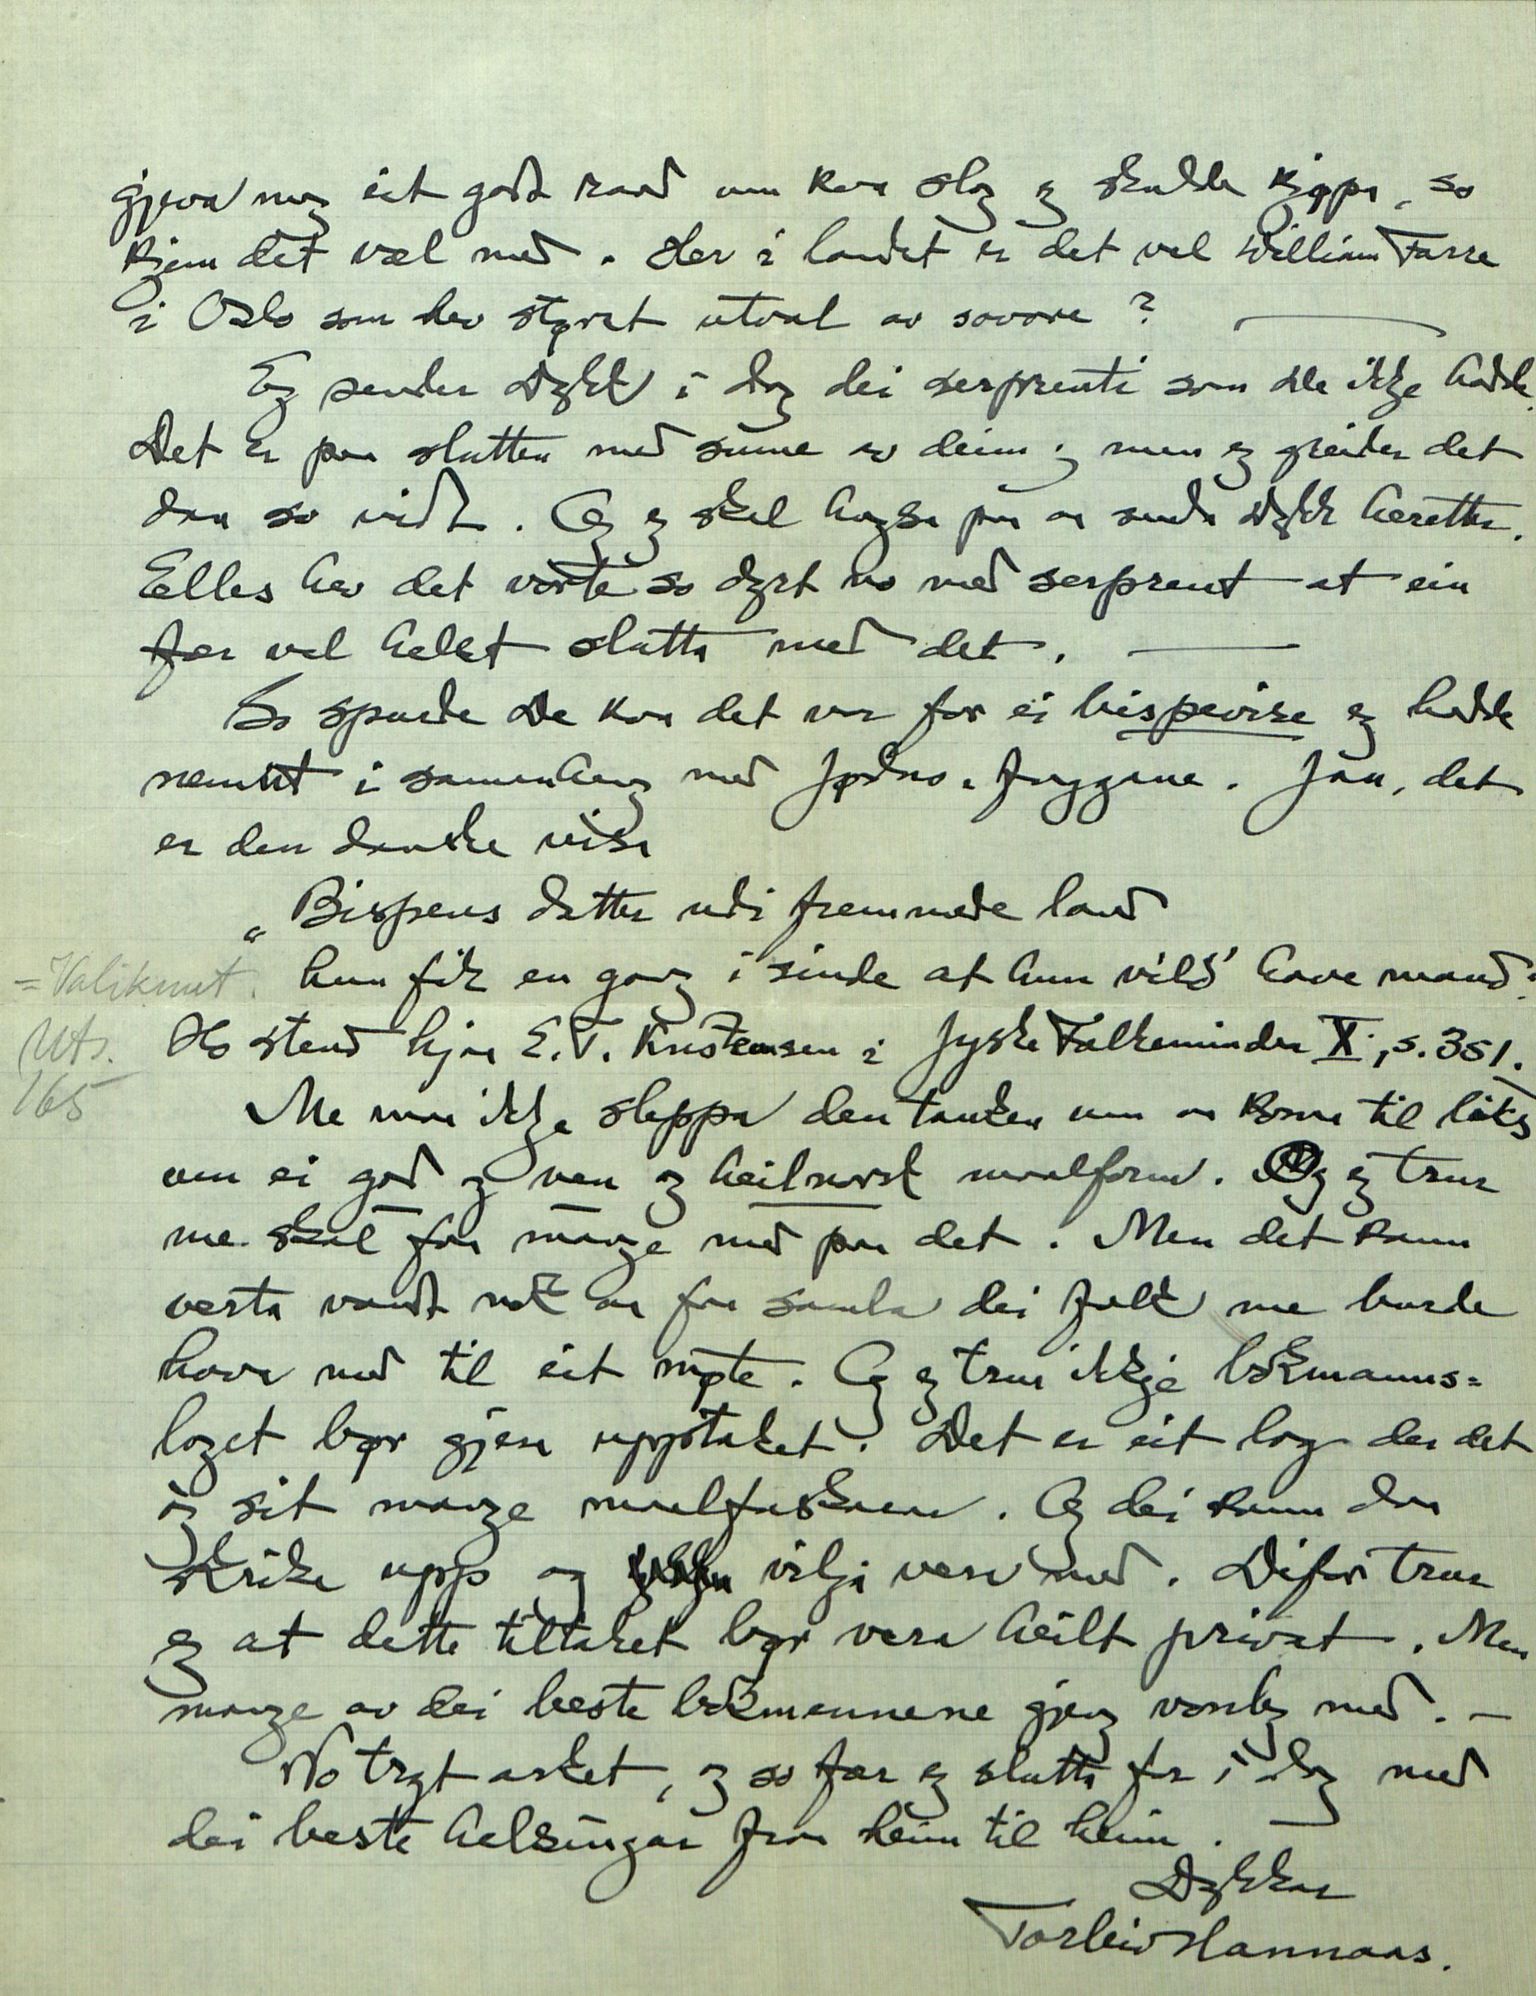 gjeva meg eit godt raad um kva slag eg skulde kjøpa, so
kjem det væl med. Her i landet er det vel William Farre
i Oslo som hev størst utval av sovore?
Eg sender Dykk i dag dei serprenti som De ikkje hadde.
Det er paa slutten med sume av deim; men eg greider det
daa so vidt. Og eg skal hugsa paa aa senda Dykk heretter.
Elles hev det vorte so dyrt no med serprent at ein
fær vel helst slutta med det.
So spurde De kva det var for ei bispevise eg hadde
nemnt i samanheng med Jødno-fuggane. Jau, det
er den danske visa
„Bispens datter udi fremmede land
hun fik en gang i sinde at hun vild' have mand:
= Valiknut.
Uts.
165
Ho stend hjaa E.T. Kristensen i Jyske Folkeminder X, s. 351.
Me maa ikkje sleppa den tanken um aa koma til laks
um ei god og ven og heilnorsk maalform. Og eg trur
me skal faa mange med paa det. Men det kann
verta vandt nok aa faa samla dei folk me burde
hava med til eit møte. Og eg trur ikkje bokmanns-
laget bør gjera upptaket. Det er eit lag der det
og sit mange maalfuskarar. Og dei kann daa
skrike upp og vilja vera med. Difor trur
eg at dette tiltaket bør vera heilt privat. Men
mange av dei beste bokmennene gjeng vonleg med. –
No tryt arket, og so fær eg slutta for i dag med
dei beste helsingar fraa heim til heim.
Dykkar
Torleiv Hannaas.